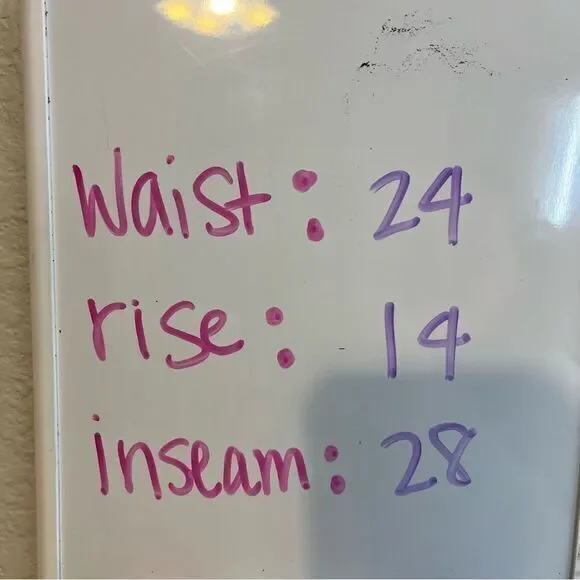 Waist: 24
rise: 14
inseam: 28